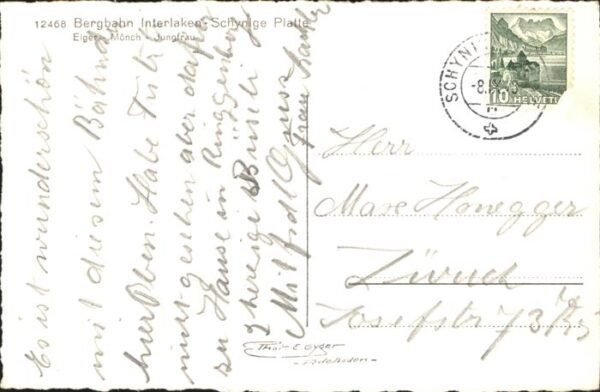 12468 Bergbahn Interlaken-Schynige Platte
Eiger - Mönch - Jungfrau
Es ist wunderschön
mit diesem Bähnli
hier oben. Habe Fritz
nicht gesehen aber dafür
zu Hause in Ringgenberg
2 herzige Buseli
Mit frdl Gruss
Frau
SCHYNI
-8.IX.
10 HELVETIA
Herr
Max Honegger
Zürich
Josefstr 73
Photo E. Gyger
- Adelboden -